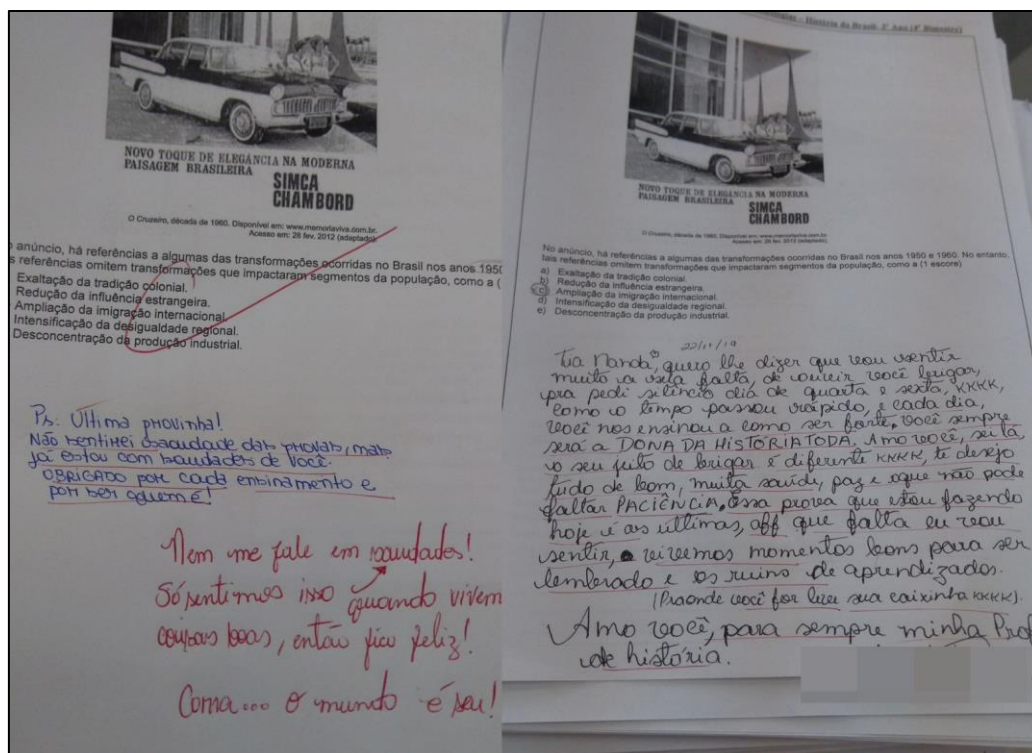 NOVO TOQUE DE ELEGÂNCIA NA MODERNA
PAISAGEM BRASILEIRA
SIMCA
CHAMBORD
O Cruzeiro, década de 1960. Disponível em: www.memoriaviva.com.br.
Acesso em: 28 fev. 2012 (adaptado)
anúncio, há referências a algumas das transformações ocorridas no Brasil nos anos 1950
s referências omitem transformações que impactaram segmentos da população, como a (
Exaltação da tradição colonial.
Redução da influência estrangeira.
Ampliação da imigração internacional.
Intensificação da desigualdade regional.
Desconcentração da produção industrial.
Ps: Última provinha!
Não sentirei saudade das provas, mas
já estou com saudades de você.
OBRIGADO por cada ensinamento e
por ser quem é!
Nem me fale em saudades!
Só sentimos isso quando vivem
coisas boas, então fico feliz!
Corra... O mundo é seu!
História do Brasil, 3º Ano (4º Bimestre)
NOVO TOQUE DE ELEGÂNCIA NA MODERNA
PAISAGEM BRASILEIRA
SIMCA
CHAMBORD
O Cruzeiro, década de 1960. Disponível em: www.memoriaviva.com.br.
Acesso em: 28 fev. 2012 (adaptado)
No anúncio, há referências a algumas das transformações ocorridas no Brasil nos anos 1950 e 1960. No entanto,
tais referências omitem transformações que impactaram segmentos da população, como a (1 escore)
a) Exaltação da tradição colonial.
b) Redução da influência estrangeira.
c) Ampliação da imigração internacional.
d) Intensificação da desigualdade regional.
e) Desconcentração da produção industrial.
22/11/19
Tia Nanda, quero lhe dizer que vou sentir
muito a sua falta, de ouvir você brigar,
pra pedi silêncio dia de quarta e sexta, KKKK,
como o tempo passou rápido, e cada dia,
você nos ensinou a como ser forte, você sempre
será a DONA DA HISTÓRIA TODA. Amo você, sei lá
o seu jeito de brigar é diferente KKKK, te desejo
tudo de bom, muita saúde, paz e oque não pode
faltar PACIÊNCIA. Essa prova que estou fazendo
hoje é as últimas, aff que falta eu vou
sentir, vivemos momentos bons para ser
lembrado e os ruins de aprendizados.
(Praonde você for leve sua caixinha KKKK).
Amo você, para sempre minha Prof
de história.